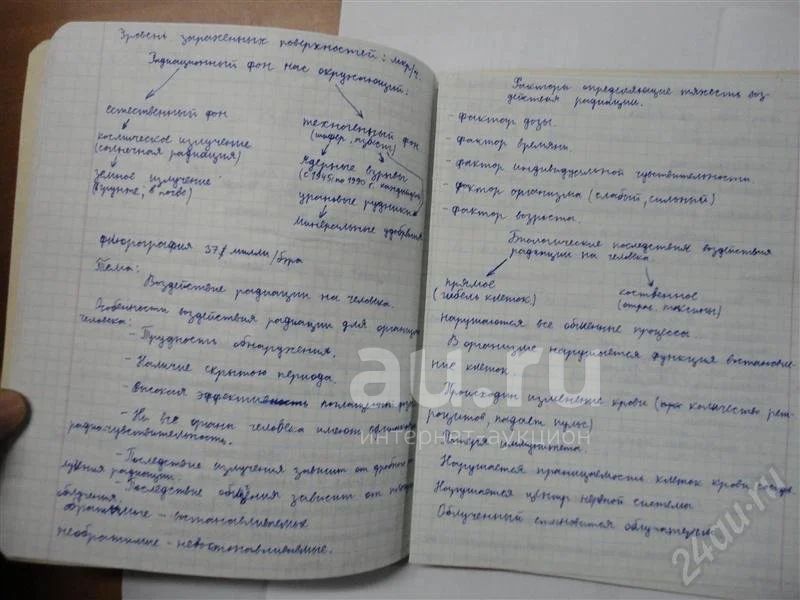 Уровень зараженных поверхностей: мкр/ч.
Радиационный фон нас окружающий:
естественный фон
космическое излучение
(солнечная радиация)
земное излучение
(в грунте, в почве)
техногенный фон
(шифер, асбест)
ядерные взрывы
(с 1945 по 1990 г.
урановые рудники
минеральные удобрения
флюорография 37, милли/бэра
Тема:
Воздействие радиации на человека.
Особенности воздействия радиации для организма
человека:
- Трудность обнаржения.
- Наличие скрытого периода.
- Высокая эффективность
- Не все органы человека имеют
радиочувствительность.
- Последствие излучения зависит от
радиации.
- Последствие облучения зависит от
облучения.
обратимые - востанавливаемые
необратимые - невостонавливаемые.
Факторы определяющие тяжесть воз-
действия радиации.
- фактор дозы.
- фактор времяни.
- фактор индивидуальной чувствительности
- фактор организма (слабый, сильный)
- фактор возроста.
Биологические последствия воздействия
радиации на человека
прямое
(гибель клеток)
(отрав. токсины)
Нарушаются все обменные процесса.
В организме нарушается функция востановле-
ние клеток.
Происходит изменение крови количество
падает пульс)
Потеря иммунитета.
Нарушается проницаемость клеток крови сосудов
Нарушается центр нервной системы
Облученный становится облучателем
au.ru
интернет аукцион
24au.ru